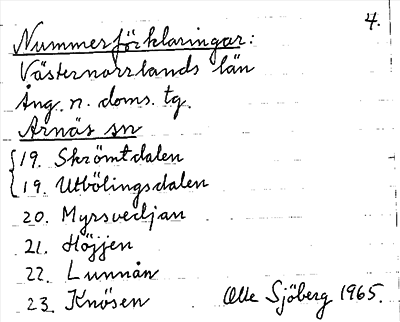 4.
Nummerförklaringar:
Västernorrlands län
Ång. n. doms. tg.
Arnäs sn
19. Skrömtdalen
19. Utbölingsdalen
20. Myrsvedjan
21. Höjjen
22. Lunnån
23. Knösen Olle Sjöberg 1965.